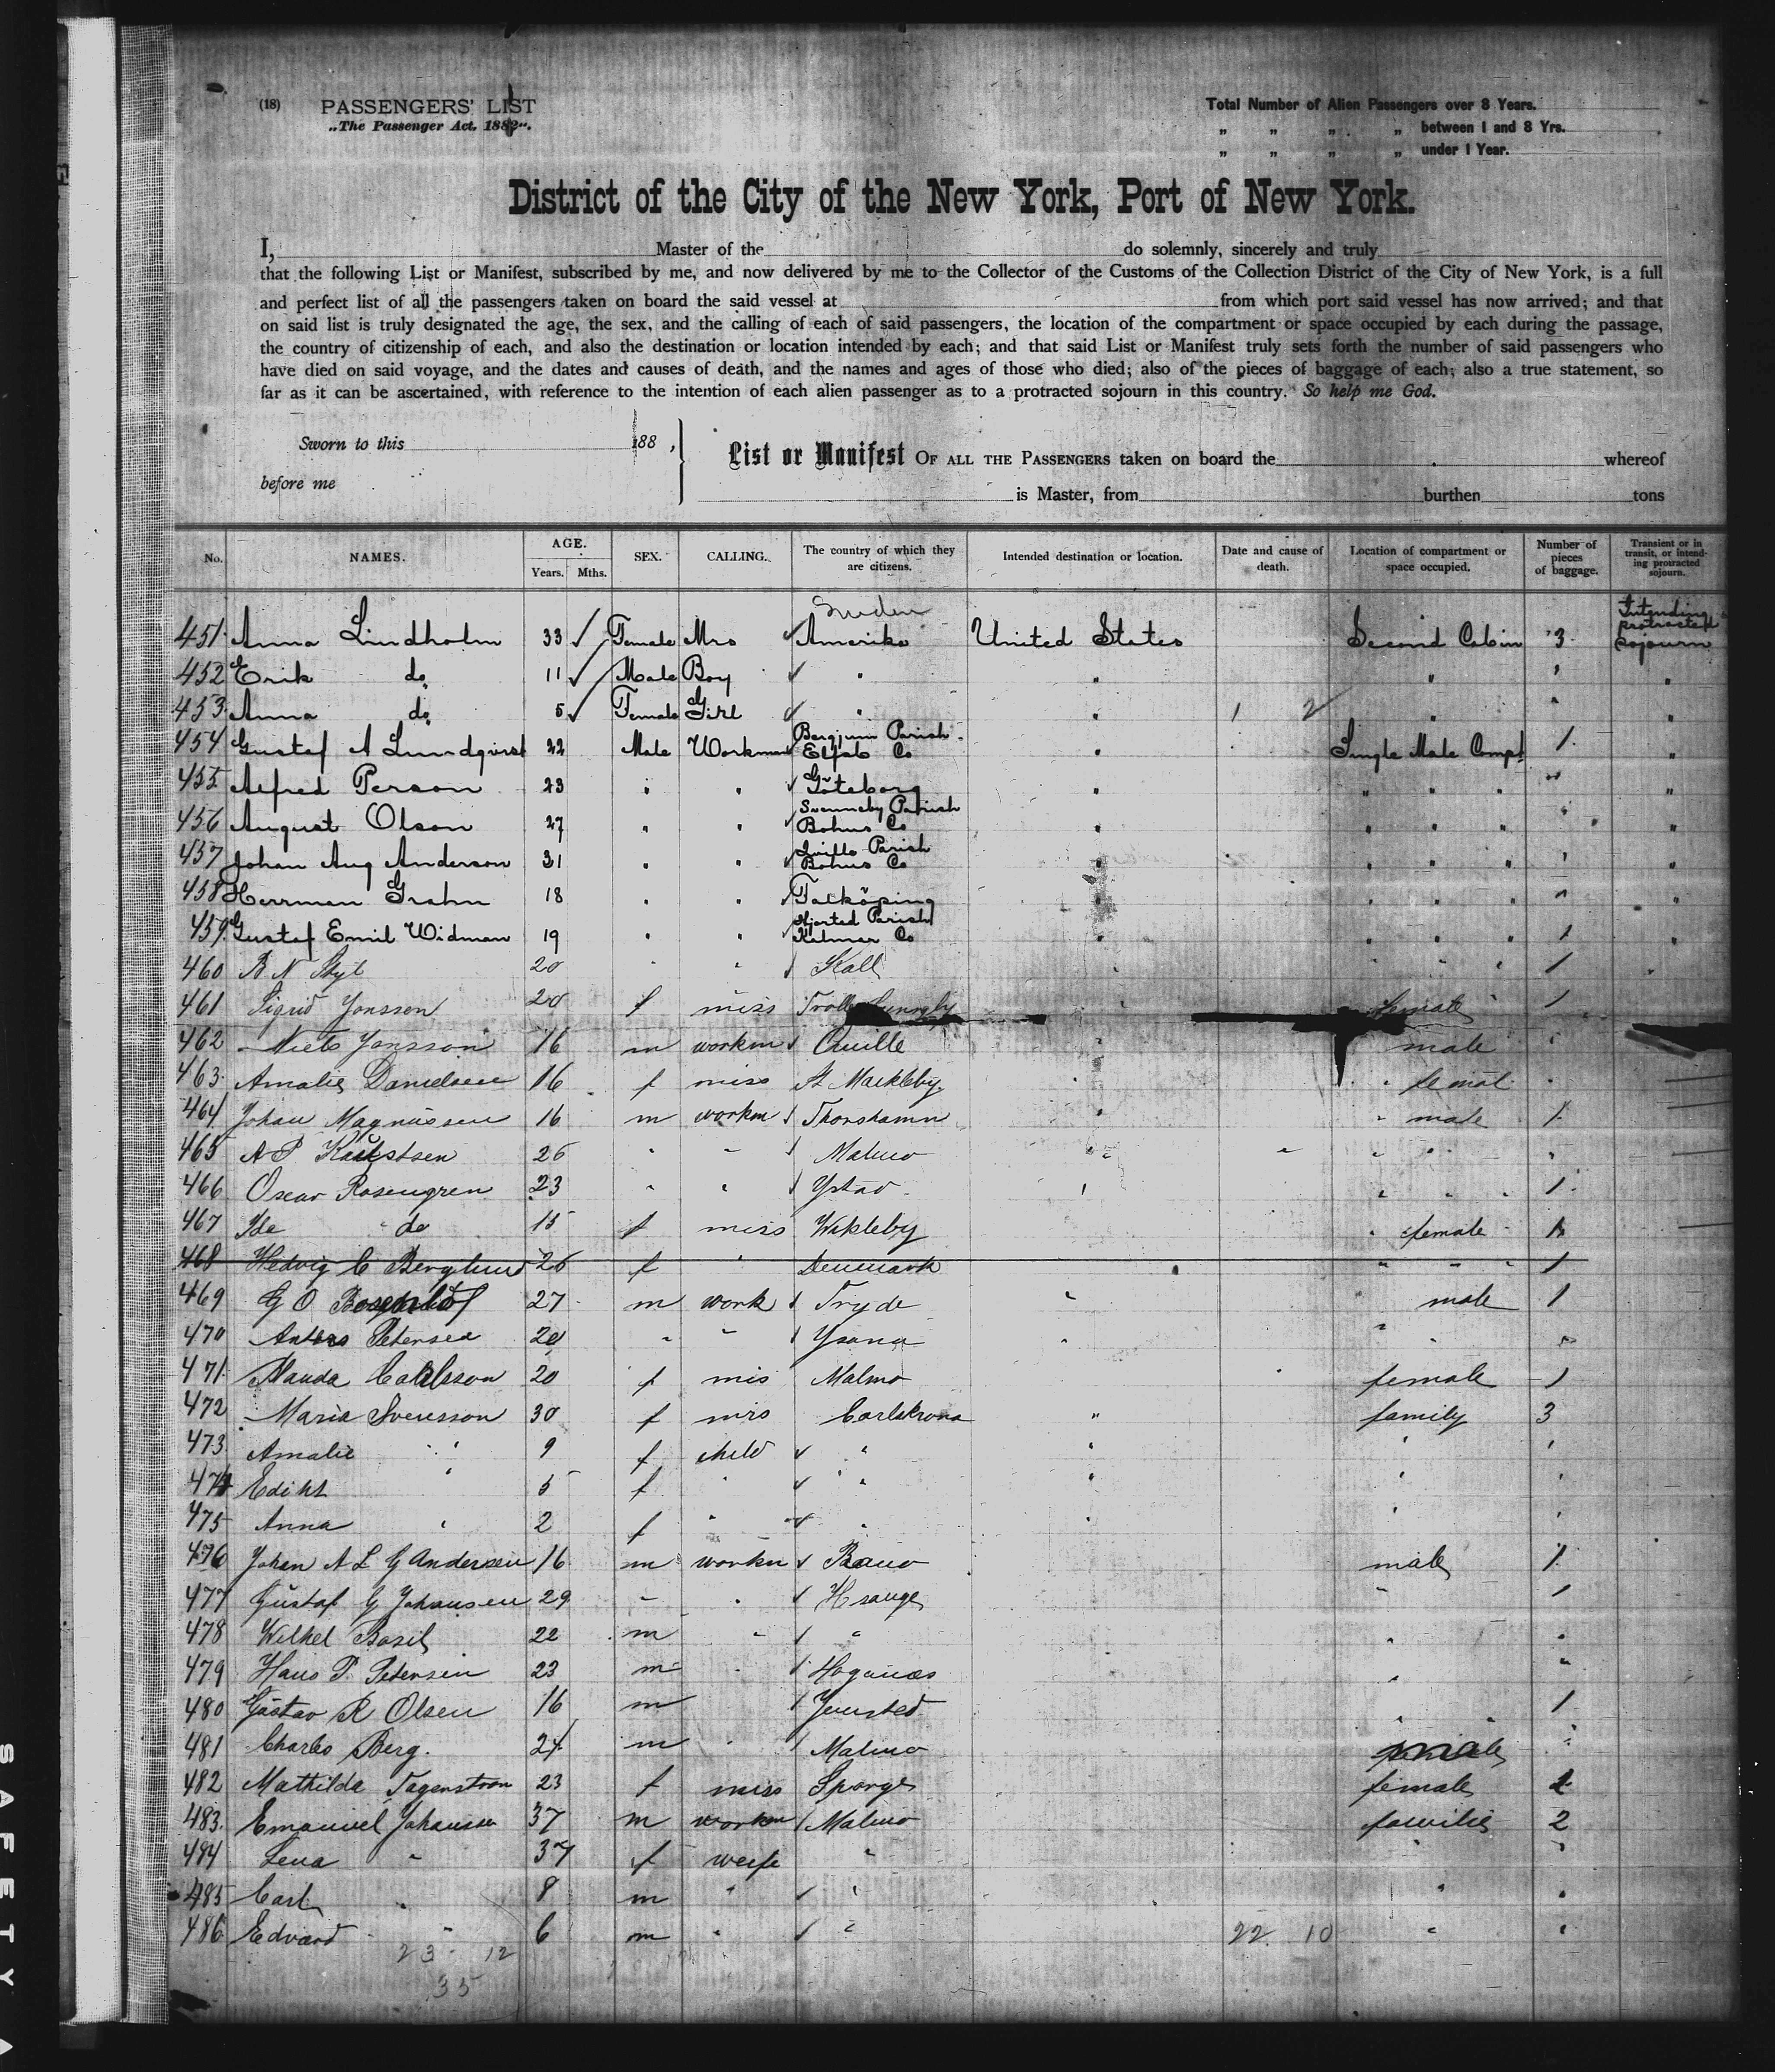 (18) PASSENGERS' LIST
„The Passenger Act. 1882".
Total Number of Alien Passengers over 8 Years.
„ „ „ „ between 1 and 8 Yrs.
„ „ „ „ under 1 Year.
District of the City of the New York, Port of New York.
I, Master of the do solemnly, sincerely and truly
that the following List or Manifest, subscribed by me, and now delivered by me to the Collector of the Customs of the Collection District of the City of New York, is a full
and perfect list of all the passengers taken on board the said vessel at from which port said vessel has now arrived; and that
on said list is truly designated the age, the sex, and the calling of each of said passengers, the location of the compartment or space occupied by each during the passage,
the country of citizenship of each, and also the destination or location intended by each; and that said List or Manifest truly sets forth the number of said passengers who
have died on said voyage, and the dates and causes of death, and the names and ages of those who died; also of the pieces of baggage of each; also a true statement, so
far as it can be ascertained, with reference to the intention of each alien passenger as to a protracted sojourn in this country. So help me God.
Sworn to this 188 ,
before me
List or Manifest OF ALL THE PASSENGERS taken on board the whereof
is Master, from burthen tons
No. NAMES. AGE. Years. Mths. SEX. CALLING. The country of which they are citizens. Intended destination or location. Date and cause of death. Location of compartment or space occupied. Number of pieces of baggage. Transient or in transit, or intending protracted sojourn.
Sweden
451 Anna Lindholm 33 ✓ Female Mrs ✓ Amerika United States Second Cabin 3 Intending protracted sojourn
452 Erik do 11 ✓ Male Boy ✓ " " " " "
453 Anna do 5 ✓ Female Girl ✓ " " 1 2 " " "
454 Gustaf A Lundqvist 22 Male Workman Bergjum Parish Elfsb Co " Single Male Compt 1 "
455 Alfred Person 23 " " ✓ Göteborg " " " " " "
456 August Olson 27 " " ✓ Svenneby Parish Bohus Co " " " " " "
457 Johan Aug Anderson 31 " " ✓ Qville Parish Bohus Co " " " " " "
458 Herrman Grahn 18 " " Falköping " " " " " "
459 Gustaf Emil Widman 19 " " Hjorted Parish Kalmar Co " " " " 1 "
460 B N 20 " " Skall " " " " 1 "
461 Sigrid Jonsson 20 f miss " female 1
462 Niels Jonsson 16 m workm Quille " male "
463 Amalie Danielsen 16 f miss St Mackleby " " femal "
464 Johan Magnussen 16 m workm Thorshamn " " male 1
465 A P 26 " " Malmo " " " "
466 Oscar Rosengren 23 " " Ystad " " " " 1
467 Ida do 15 f miss Wekleby " female 1
468 Hedvig C Berglund 26 f " Denmark " " " 1
469 G O 27 m work Tryde " male 1
470 Anters Petersen 20 " " Ysana " " " "
471 Manda Carlsson 20 f mis Malmo female 1
472 Maria Svensson 30 f mrs Carlskrona " family 3
473 Amalie " 9 f child ✓ " " " "
474 Ediht " 5 f " ✓ " " " "
475 Anna " 2 f " ✓ " " " "
476 Johan A L G Andersen 16 m workm male 1
477 Gustaf G Johansen 29 " " " 1
478 Wilhel Basil 22 m " " " "
479 Hans P. Petersen 23 m " Hoganæs " "
480 Gustav R Olsen 16 m " 1
481 Charles Berg. 24 m " Malmo male "
482 Mathilda Tagenstrom 23 f miss female 1
483 Emanuel Johansson 37 m workm Malmo familie 2
484 Lena " 37 f weife " " "
485 Carl " 8 m " ✓ " " "
486 Edvard " 6 m " ✓ " 22. 10 " "
23 12
35
SAFETY A